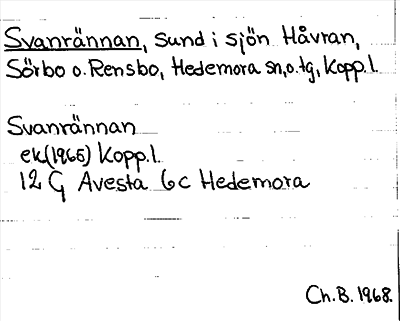 Svanrännan, sund i sjön Håvran,
Sörbo o. Rensbo, Hedemora sn, o. tg, Kopp. l.
Svanrännan
ek (1965) Kopp. l.
12 G Avesta 6c Hedemora
Ch. B. 1968.